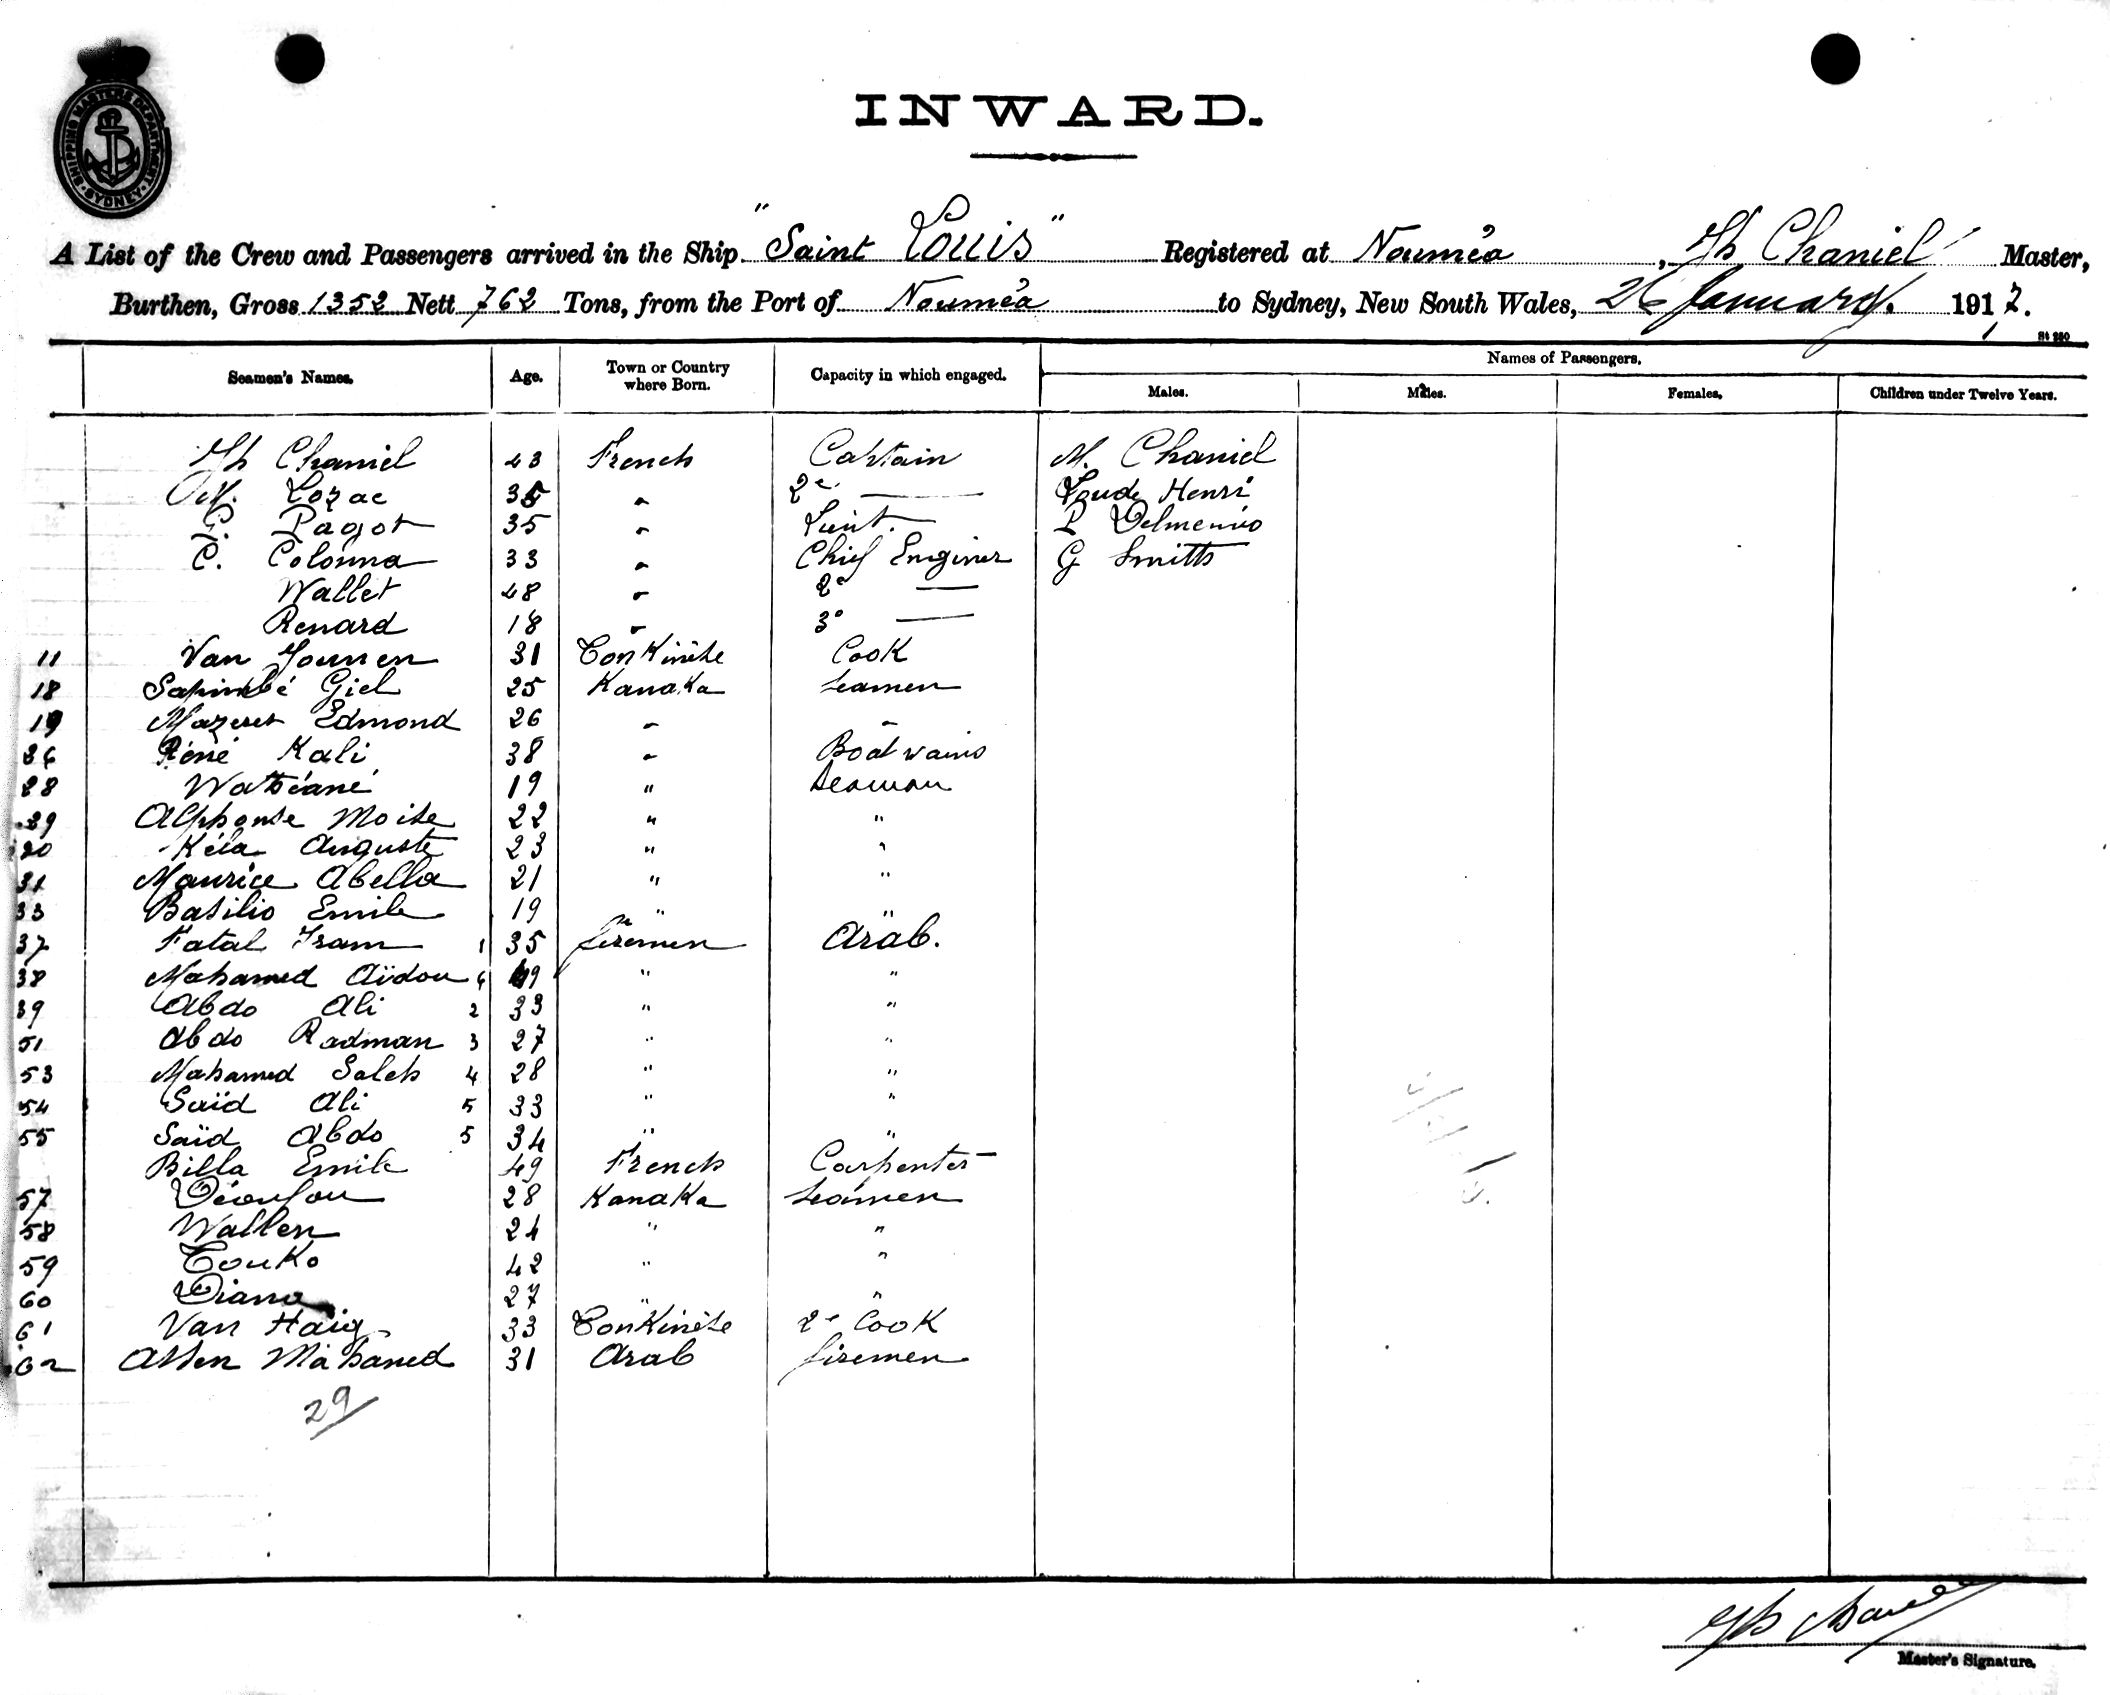 SHIPPING MASTERS DEPARTMENT
SYDNEY
INWARD.
A List of the Crew and Passengers arrived in the Ship "Saint Louis" Registered at Nouméa, Th Chaniel Master,
Burthen, Gross 1352 Nett 762 Tons, from the Port of Nouméa to Sydney, New South Wales, 26 January. 1917.
St 250
Seamen's Names. Age. Town or Country where Born. Capacity in which engaged. Names of Passengers.
Males. Males. Females. Children under Twelve Years.
Th Chaniel 43 French Captain M. Chaniel
M. Lozac 35 " 2e — Henri
P. Pagot 35 " Lieut. P Delmenico
C. Colonna 33 " Chief Enginer G Smitts
Wallet 48 " 2e —
Renard 18 " 3e —
11 Van Younen 31 Tonkinese Cook
18 Sapimbé Giel 25 Kanaka Seamen
19 Mazeret Edmond 26 " "
26 Réné Kali 38 " Boatswains
28 Watiéané 19 " Seaman
29 Alphonse Moise 22 " "
30 Kéla Auguste 23 " "
31 Maurice Abella 21 " "
33 Basilio Emile 19 " "
37 Fatal Iram 1 35 firemen Arab.
38 Mohamed Aïdou 6 49 " "
39 Abdo Ali 2 33 " "
51 Abdo Radman 3 27 " "
53 Mohamed Saleh 4 28 " "
54 Saïd Ali 5 33 " "
55 Saïd Abdo 5 34 " "
Billa Emile 49 French Carpenter
57 Déoufou 28 Kanaka Seamen
58 Wallen 24 " "
59 Touko 42 " "
60 Diana 27 " "
61 Van Haig 33 Tonkinese 2e Cook
62 Assen Mohamed 31 Arab firemen
29
Th Chaniel
Master's Signature.